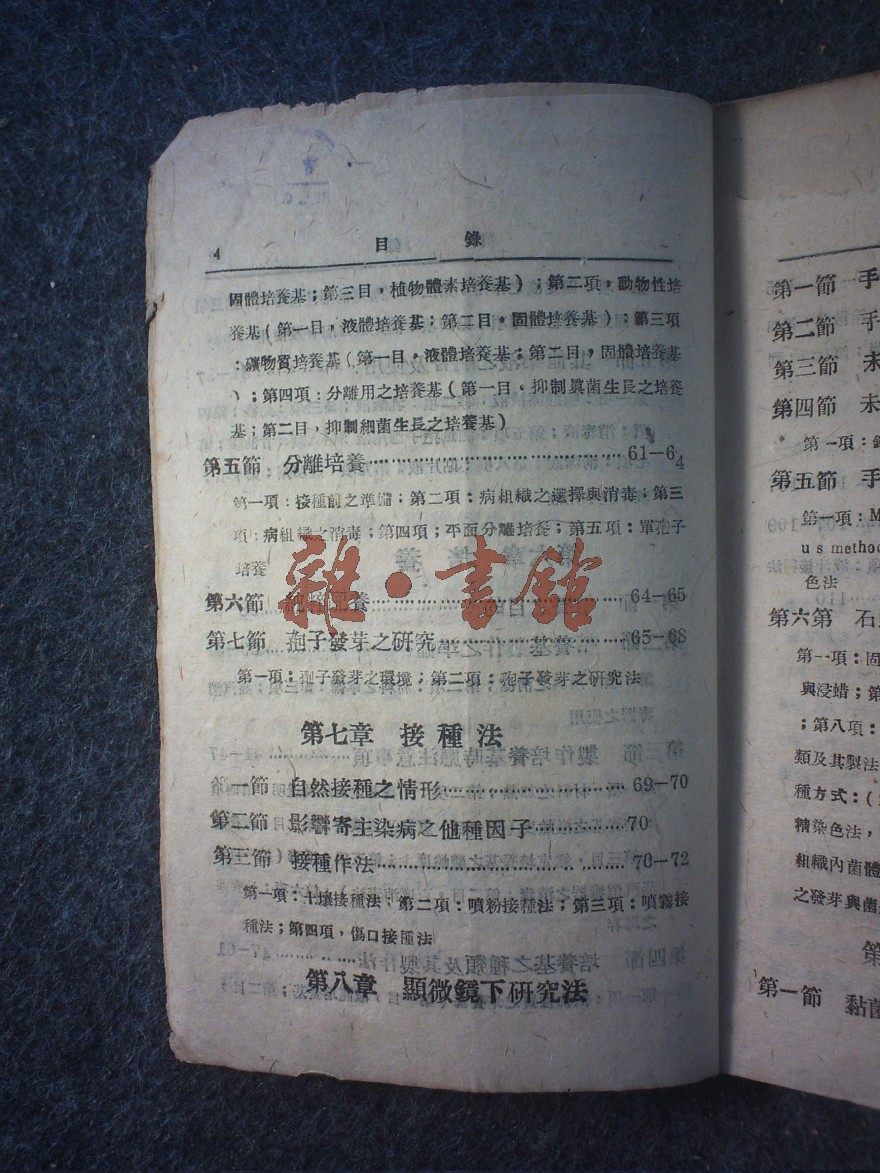 4 目 錄
固體培養基;第三目,植物體素培養基);第二項,動物性培
養基(第一目,液體培養基;第二目,固體培養基);第三項
:礦物質培養基(第一目,液體培養基;第二目,固體培養基
);第四項:分離用之培養基(第一目,抑制眞菌生長之培養
基;第二目,抑制細菌生長之培養基)
第五節 分離培養……………………………………61—64
第一項:接種前之準備;第二項:病組織之選擇與消毒;第三
項:病組織之消毒;第四項;平面分離培養;第五項:單孢子
培養
第六節 養……………………………………64—65
第七節 孢子發芽之研究…………………………65—68
第一項:孢子發芽之環境;第二項:孢子發芽之研究法
第七章 接種法
第一節 自然接種之情形…………………………69—70
第二節 影響寄主染病之他種因子……………70
第三節 接種作法…………………………………70—72
第一項:土壤接種法;第二項:噴粉接種法;第三項:噴霧接
種法;第四項,傷口接種法
第八章 顯微鏡下研究法
雜·書館
第一節 手
第二節 手
第三節 未
第四節 未
第一項:
第五節 手
第一項:M
us method
色法
第六第 石
第一項:固
與浸蜡;
;第八項:
類及其製法
種方式:(
精染色法,
組織內菌體
之發芽與菌
第
第一節 黏菌